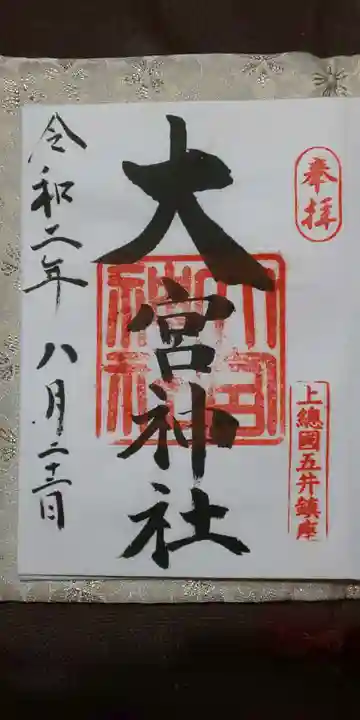 奉拝
上總國五井鎮座
大宮神社
大宮神社
令和二年八月二十二日